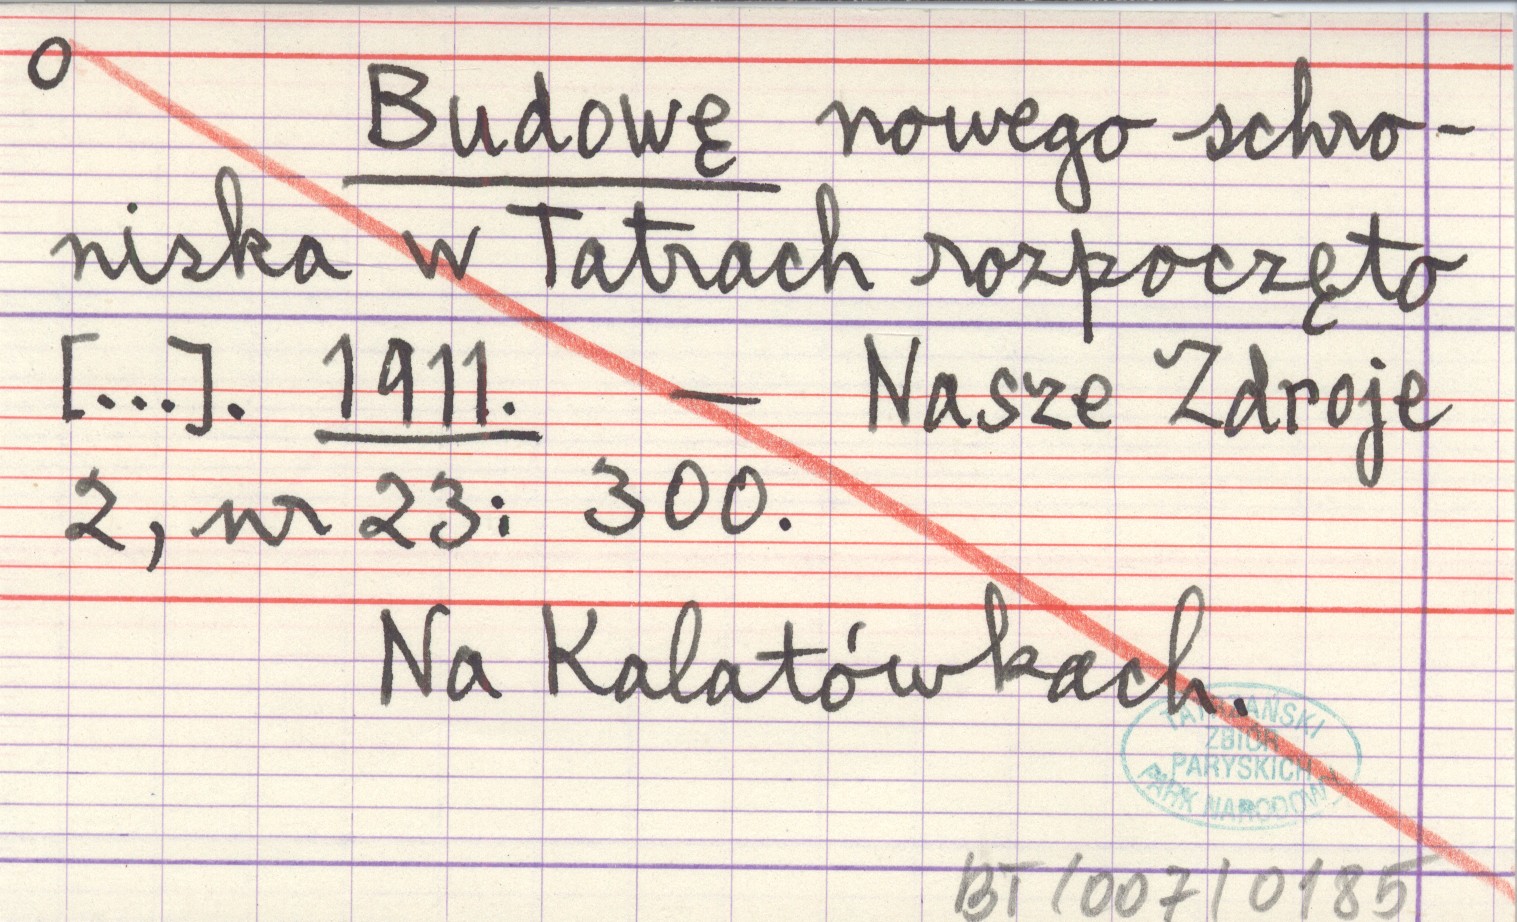 O
Budowę nowego schro-
niska w Tatrach rozpoczęto
[...]. 1911. — Nasze Zdroje
2, nr 23: 300.
Na Kalatówkach.
TATRZAŃSKI
ZBIÓR
PARYSKICH
PARK NARODOWY
BT/007/0185